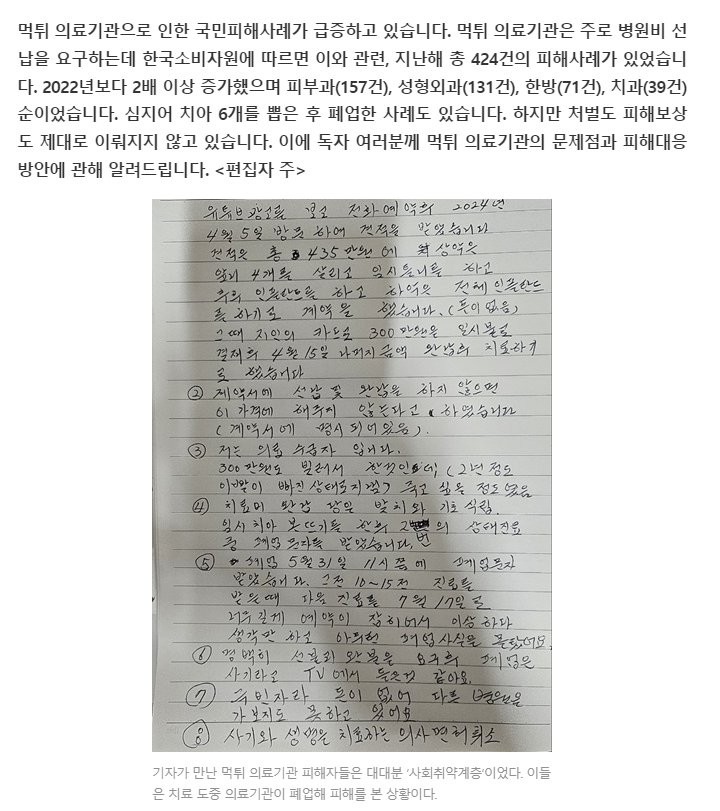 먹튀 의료기관으로 인한 국민피해사례가 급증하고 있습니다. 먹튀 의료기관은 주로 병원비 선
납을 요구하는데 한국소비자원에 따르면 이와 관련, 지난해 총 424건의 피해사례가 있었습니
다. 2022년보다 2배 이상 증가했으며 피부과(157건), 성형외과(131건), 한방(71건), 치과(39건)
순이었습니다. 심지어 치아 6개를 뽑은 후 폐업한 사례도 있습니다. 하지만 처벌도 피해보상
도 제대로 이뤄지지 않고 있습니다. 이에 독자 여러분께 먹튀 의료기관의 문제점과 피해대응
방안에 관해 알려드립니다. <편집자 주>
유튜브 광고를 보고 전화예약후 2024년
4월 5일 방문하여 견적을 받았습니다
견적은 총 435만원에 상악은
앞니 4개를 살리고 임시틀니를 하고
임플란트를 하고 하악은 전체 임플란트
를 하기로 계약을 했습니다. (돈이 없음)
그때 지인의 카드로 300만원을 일시불로
결재후 4월 15일 나머지 금액 완납후 치료하기
로 했습니다
② 계약서에 선납 및 완납을 하지 않으면
이 가격에 해주지 않는다고 하였습니다
(계약서에 명시되어있음).
③ 저는 의료 수급자 입니다.
300만원도 빌려서 한것인데, (2년 정도
이빨이 빠진 상태로지냄) 죽고 싶을 정도였음
④ 치료비 완납 당일 발치와 기초식립.
임시치아 본뜨기를 한후 2번의 상태진료
중 폐업문자를 받았습니다.
⑤ 폐업 5월 31일 11시쯤에 폐업문자
받았습니다. 그전 10~15전 진료를
받을때 다음 진료를 7월 17일로
너무길게 예약이 잡혀서 이상하다
생각만 하고 폐업사실을 몰랐어요.
⑥ 명백히 선불과 완불을 요구후 폐업은
사기라고 TV에서 들은것 같아요.
⑦ 돈이 없어 다른 병원을
가보지도 못하고 있어요
⑧ 사기와 생명을 치료하는 의사면허취소
기자가 만난 먹튀 의료기관 피해자들은 대대분 '사회취약계층'이었다. 이들
은 치료 도중 의료기관이 폐업해 피해를 본 상황이다.